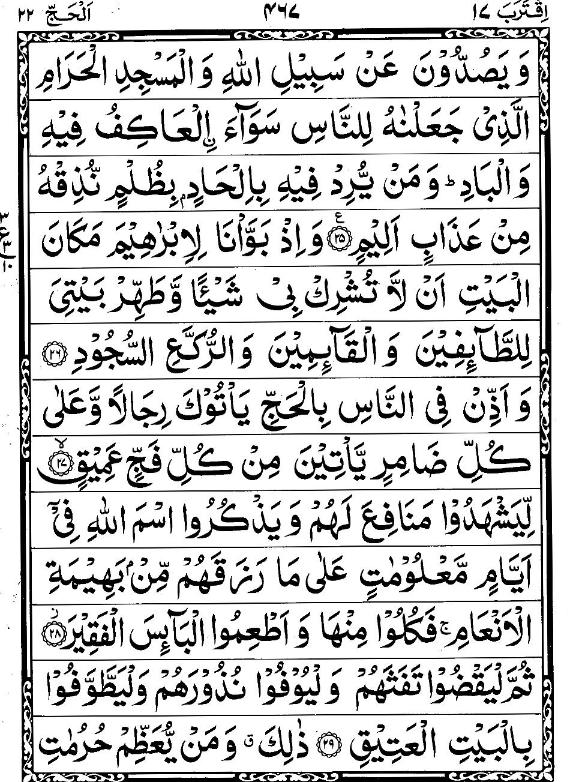 اِقْتَرَبَ ١٧ ٤٦٧ اَلْحَجّ ٢٢
وَيَصُدُّوْنَ عَنْ سَبِيْلِ اللّٰهِ وَالْمَسْجِدِ الْحَرَامِ
الَّذِىْ جَعَلْنٰهُ لِلنَّاسِ سَوَآءَ ۨالْعَاكِفُ فِيْهِ
وَالْبَادِ ؕ وَمَنْ يُّرِدْ فِيْهِ بِاِلْحَادٍۭ بِظُلْمٍ نُّذِقْهُ
مِنْ عَذَابٍ اَلِيْمٍ ۟ع ﴿٢٥﴾ وَاِذْ بَوَّاْنَا لِاِبْرٰهِيْمَ مَكَانَ
الْبَيْتِ اَنْ لَّا تُشْرِكْ بِىْ شَيْـًٔا وَّطَهِّرْ بَيْتِىَ
لِلطَّآئِفِيْنَ وَالْقَآئِمِيْنَ وَالرُّكَّعِ السُّجُوْدِ ﴿٢٦﴾
وَاَذِّنْ فِى النَّاسِ بِالْحَجِّ يَاْتُوْكَ رِجَالًا وَّعَلٰى
كُلِّ ضَامِرٍ يَّاْتِيْنَ مِنْ كُلِّ فَجٍّ عَمِيْقٍ ۙ ﴿٢٧﴾
لِّيَشْهَدُوْا مَنَافِعَ لَهُمْ وَيَذْكُرُوا اسْمَ اللّٰهِ فِىْۤ
اَيَّامٍ مَّعْلُوْمٰتٍ عَلٰى مَا رَزَقَهُمْ مِّنْۢ بَهِيْمَةِ
الْاَنْعَامِ ۚ فَكُلُوْا مِنْهَا وَاَطْعِمُوا الْبَآئِسَ الْفَقِيْرَ ﴿٢٨﴾
ثُمَّ لْيَقْضُوْا تَفَثَهُمْ وَلْيُوْفُوْا نُذُوْرَهُمْ وَلْيَطَّوَّفُوْا
بِالْبَيْتِ الْعَتِيْقِ ﴿٢٩﴾ ذٰلِكَ ۗ وَمَنْ يُّعَظِّمْ حُرُمٰتِ